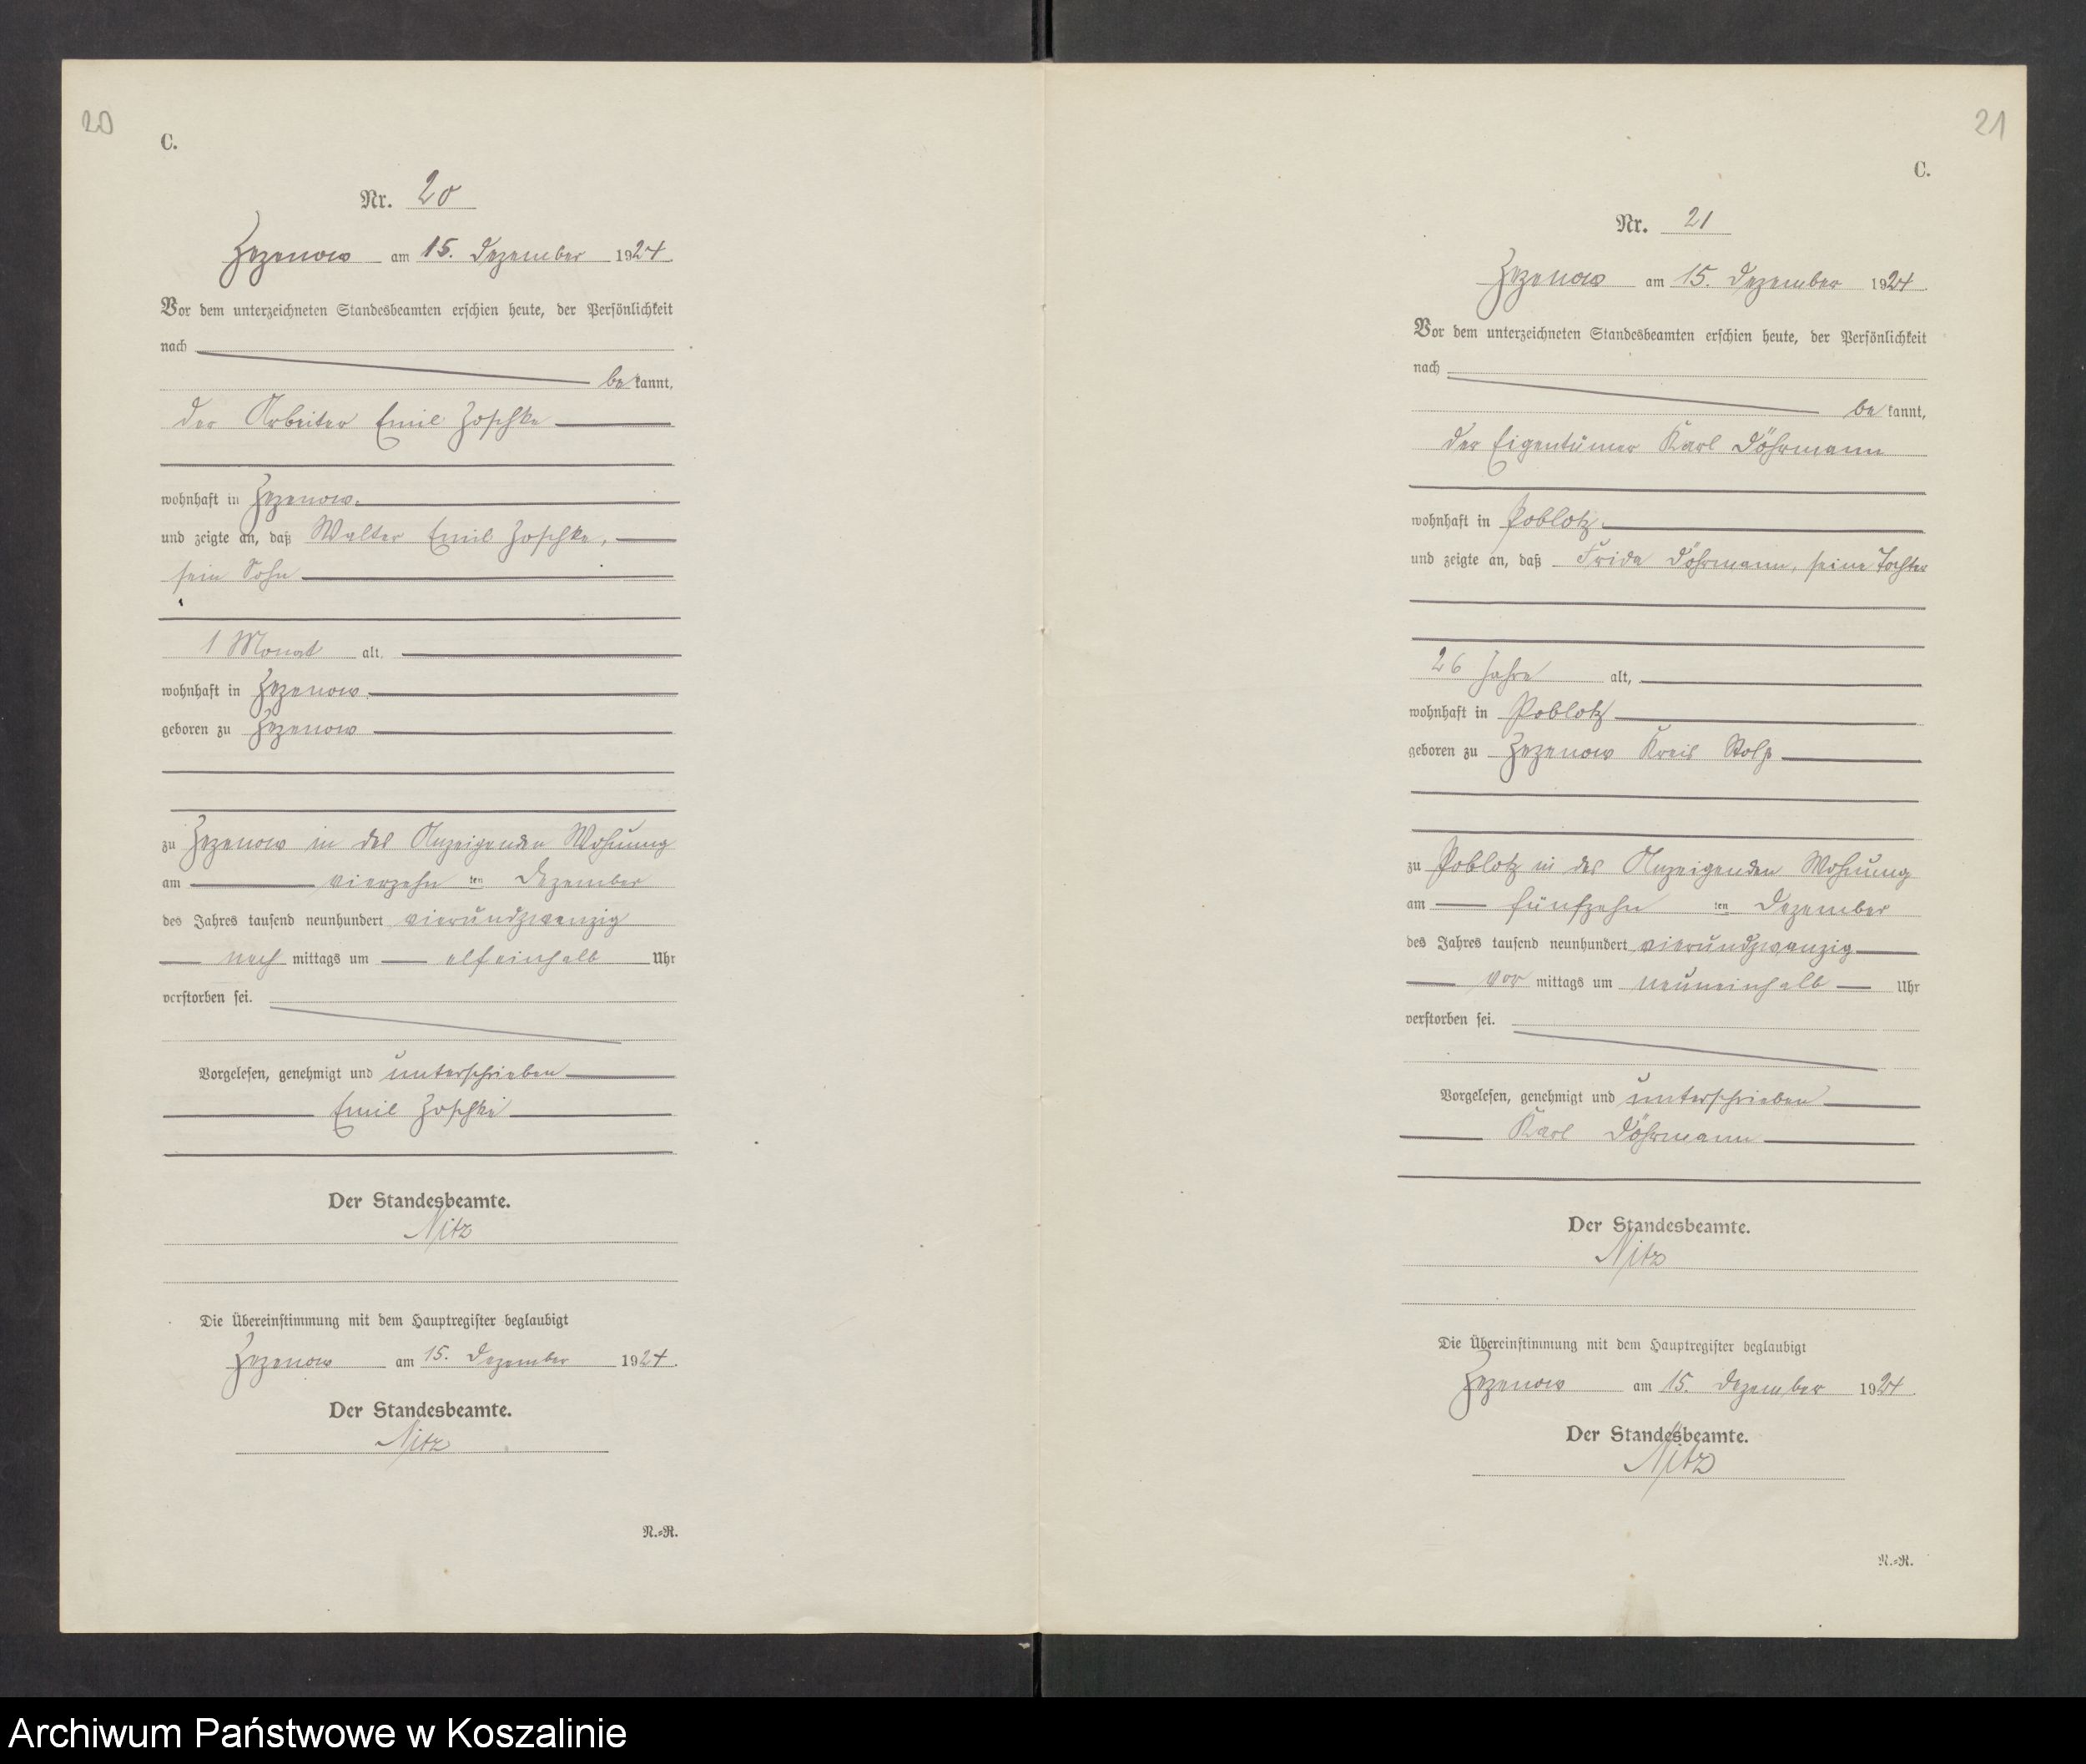 20
C.
Nr. 20
Zezenow am 15. Dezember 1924.
Vor dem unterzeichneten Standesbeamten erschien heute, der Persönlichkeit
nach
be kannt,
der Arbeiter Emil Zoschke
wohnhaft in Zezenow.
und zeigte an, daß Walter Emil Zoschke,
sein Sohn
1 Monat alt,
wohnhaft in Zezenow,
geboren zu Zezenow
zu Zezenow in des Anzeigenden Wohnung
am vierzehn ten Dezember
des Jahres tausend neunhundert vierundzwanzig
nach mittags um elfeinhalb Uhr
verstorben sei.
Vorgelesen, genehmigt und unterschrieben
Emil Zoschke
Der Standesbeamte.
Nitz
Die Übereinstimmung mit dem Hauptregister beglaubigt
Zezenow am 15. Dezember 1924.
Der Standesbeamte.
Nitz
N.=R.
21
C.
Nr. 21
Zezenow am 15. Dezember 1924.
Vor dem unterzeichneten Standesbeamten erschien heute, der Persönlichkeit
nach
be kannt,
der Eigentümer Karl Döhrmann
wohnhaft in Poblotz.
und zeigte an, daß Frida Döhrmann, seine Tochter
26 Jahre alt,
wohnhaft in Poblotz
geboren zu Zezenow Kreis Stolp
zu Poblotz in des Anzeigenden Wohnung
am fünfzehn ten Dezember
des Jahres tausend neunhundert vierundzwanzig
vor mittags um neuneinhalb Uhr
verstorben sei.
Vorgelesen, genehmigt und unterschrieben
Karl Döhrmann
Der Standesbeamte.
Nitz
Die Übereinstimmung mit dem Hauptregister beglaubigt
Zezenow am 15. Dezember 1924.
Der Standesbeamte.
Nitz
N.=R.
Archiwum Państwowe w Koszalinie